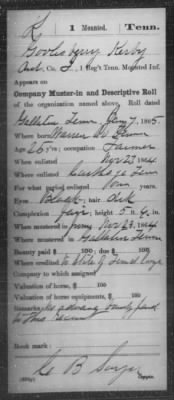 K | 1 Mounted. | Tenn.
Goolsberry Kerby
Co. , 1 Reg't Tenn. Mounted Inf.
Appears on
Company Muster-in and Descriptive Roll
of the organization named above. Roll dated
Gallatin Tenn Jany 7, 1865.
Where born Macon Co Tenn
Age 25 y'rs; occupation Farmer
When enlisted Nov 23, 1864
Where enlisted Carthage Tenn
For what period enlisted One years.
Eyes Black; hair Dark
Complexion Fair; height 5 ft. 6 in.
When mustered in
Where mustered in Gallatin Tenn
Bounty paid $ 100; due $ 100
Where credited
Company to which assigned
Valuation of horse, $ 100
Valuation of horse equipments, $ 100
Remarks: bounty paid
to this
Book mark:
Copyist.